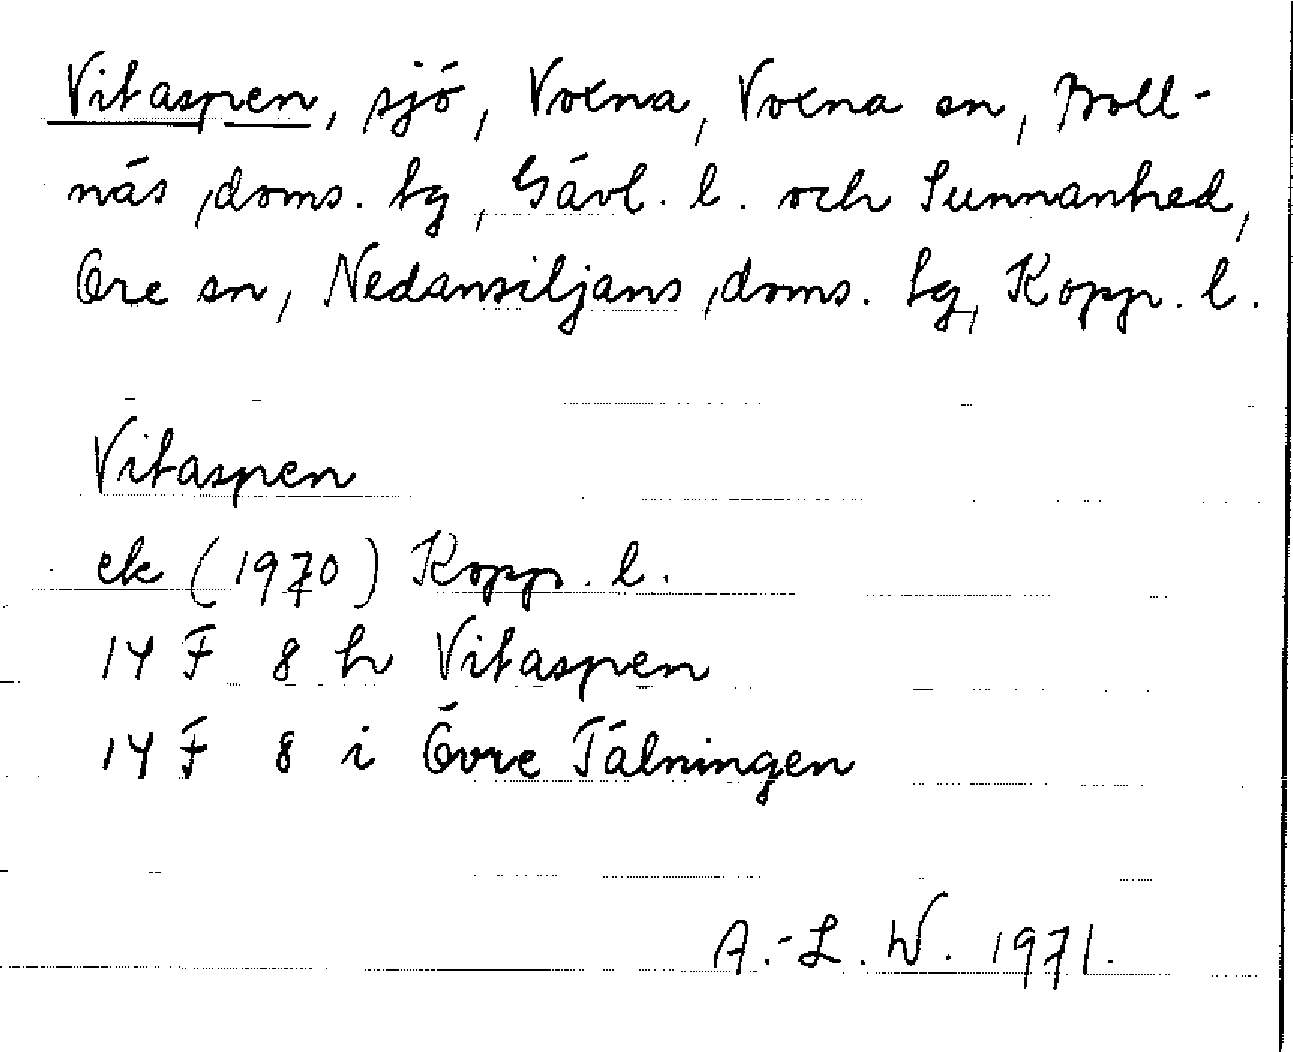 Vitaspen, sjö, Voxna, Voxna sn, Boll-
näs doms. tg, Gävl. l. och Sunnanhed,
Ore sn, Nedansiljans doms. tg, Kopp. l.
Vitaspen
ek (1970) Kopp. l.
14 F 8 h Vitaspen
14 F 8 i Övre Tälningen
A.-L. W. 1971.